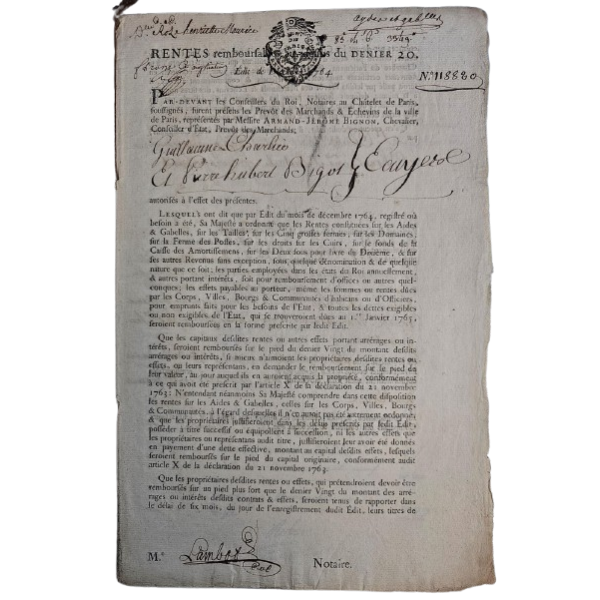 aydes et gabelles
RENTES remboursables du DENIER 20.
Edit de 1764.
N.° 118880
PAR-DEVANT les Conseillers du Roi, Notaires au Châtelet de Paris,
soussignés, furent présens les Prevôt des Marchands & Echevins de la ville
de Paris, représentés par Messire ARMAND-JÉROME BIGNON, Chevalier,
Conseiller d'Etat, Prevôt des Marchands;
Guillaume Charlier
Et Pierre hubert Bigot Ecuyers
autorisés à l'effet des présentes.
LESQUELS ont dit que par Edit du mois de décembre 1764, registré où
besoin a été, Sa Majesté a ordonné que les Rentes constituées sur les Aides
& Gabelles, sur les Tailles, sur les Cinq grosses fermes, sur les Domaines,
sur la Ferme des Postes, sur les droits sur les Cuirs, sur le fonds de la
Caisse des Amortissemens, sur les Deux sous pour livre du Dixième, & sur
ses autres Revenus sans exception, sous quelque dénomination & de quelque
nature que ce soit, les parties employées dans ses états du Roi annuellement,
& autres portant intérêts, soit pour remboursement d'offices ou autres quel-
conques; les effets payables au porteur, même les sommes ou rentes dûes
par les Corps, Villes, Bourgs & Communautés d'habitans ou d'Officiers,
pour emprunts faits pour les besoins de l'Etat, & toutes les dettes exigibles
ou non exigibles de l'Etat, qui se trouveroient dûes au 1.er Janvier 1765,
seroient remboursées en la forme prescrite par ledit Edit.
Que les capitaux desdites rentes ou autres effets portant arrérages ou in-
térêts, seroient remboursés sur le pied du denier Vingt du montant desdits
arrérages ou intérêts, si mieux n'aimoient les propriétaires desdites rentes ou
effets, ou leurs représentans, en demander le remboursement sur le pied de
leur valeur, au jour auquel ils en auroient acquis la propriété, conformément
à ce qui avoit été prescrit par l'article X de la déclaration du 21 novembre
1763: N'entendant néanmoins Sa Majesté comprendre dans cette disposition
les rentes sur les Aides & Gabelles, celles sur les Corps, Villes, Bourgs
& Communautés, à l'égard desquelles il n'en auroit pas été autrement ordonné;
& que les propriétaires justifieroient dans les délais prescrits par ledit Edit,
posséder à titre successif ou équipollent à succession, ni les autres effets que
les propriétaires ou représentans audit titre, justifieroient leur avoir été donnés
en payement d'une dette effective, montant au capital desdits effets, lesquels
seroient remboursés sur le pied du capital originaire, conformément audit
article X de la déclaration du 21 novembre 1763.
Que les propriétaires desdites rentes ou effets, qui prétendroient devoir être
remboursés sur un pied plus fort que le denier Vingt du montant des arré-
rages ou intérêts desdits contrats & effets, seroient tenus de rapporter dans
le délai de six mois, du jour de l'enregistrement dudit Edit, leurs titres de
M.e Lambot Notaire.